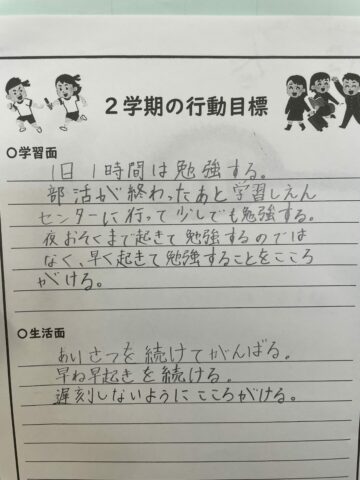 2学期の行動目標
○学習面
1日1時間は勉強する。
部活が終わったあと学習しえん
センターに行って少しでも勉強する。
夜おそくまで起きて勉強するのでは
なく、早く起きて勉強することをこころ
がける。
○生活面
あいさつを続けてがんばる。
早ね早起きを続ける。
遅刻しないようにこころがける。